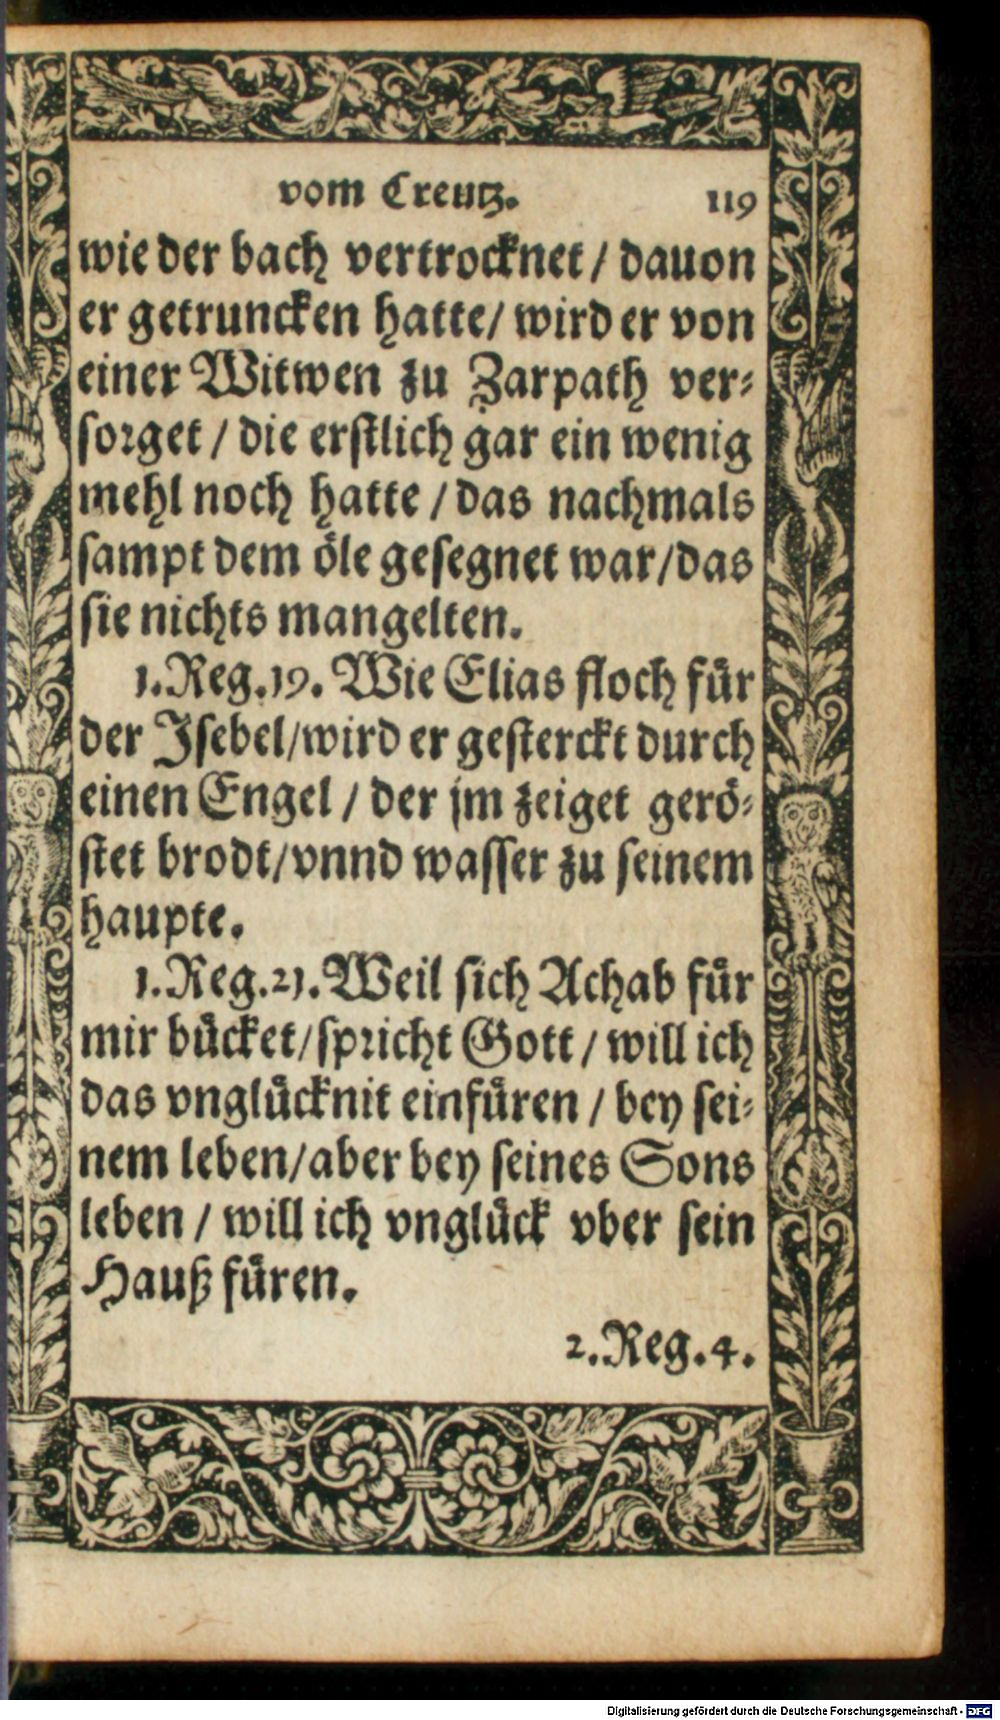 vom Creutz. 119
wie der bach vertrocknet / dauon
er getruncken hatte / wird er von
einer Witwen zu Zarpath ver-
sorget / die erstlich gar ein wenig
mehl noch hatte / das nachmals
sampt dem öle gesegnet war / das
sie nichts mangelten.
1. Reg. 19. Wie Elias floch für
der Jsebel / wird er gesterckt durch
einen Engel / der jm zeiget gerö-
stet brodt / vnnd wasser zu seinem
haupte.
1. Reg. 21. Weil sich Achab für
mir bücket / spricht Gott / will ich
das vnglück nit einfüren / bey sei-
nem leben / aber bey seines Sons
leben / will ich vnglück vber sein
Hauß füren.
2. Reg. 4.
Digitalisierung gefördert durch die Deutsche Forschungsgemeinschaft - DFG